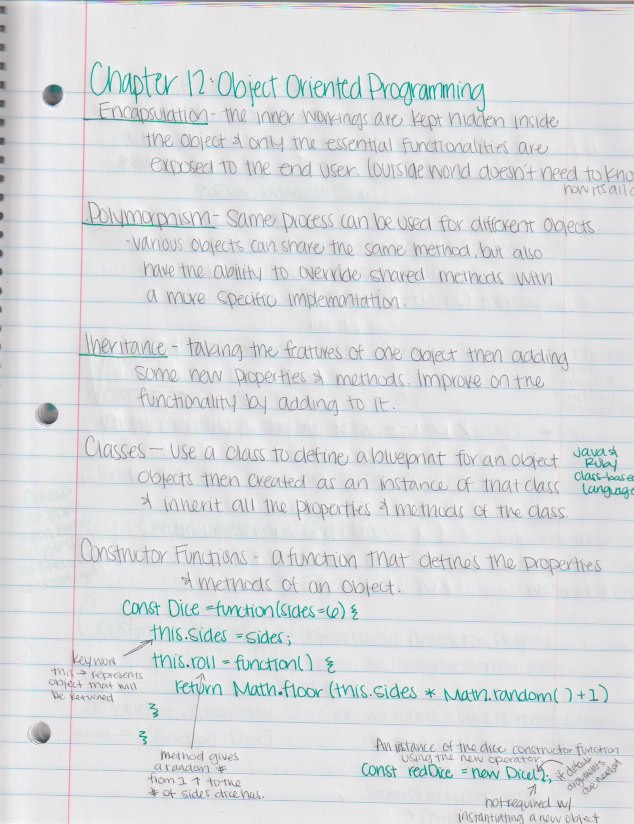 Chapter 12: Object Oriented Programming
Encapsulation - the inner workings are kept hidden inside
the object & only the essential functionalities are
exposed to the end user. (outside world doesn't need to
how its all
Polymorphism - Same process can be used for different objects.
· various objects can share the same method, but also
have the ability to override shared methods with
a more specific implementation.
Inheritance - taking the features of one object then adding
some new properties & methods. Improve on the
functionality by adding to it.
Classes - use a class to define a blueprint for an object
objects then created as an instance of that class
& inherit all the properties & methods of the class.
Java &
Ruby
class-based
language
Constructor Functions - a function that defines the properties
& methods of an object.
const Dice = function(sides=6) {
this.sides = sides;
this.roll = function() {
return Math.floor(this.sides * Math.random() + 1)
}
}
keyword
this → represents
object that will
be returned
method gives
a random #
from 1 ↑ to the
# of sides dice has.
An instance of the dice constructor function
using the new operator.
const redDice = new Dice();
if default
arguments
are needed
not required w/
instantiating a new object